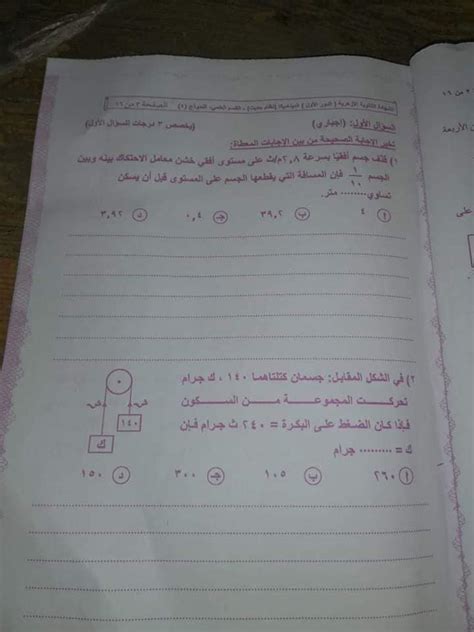 الشهادة الثانوية الأزهرية ( الدور الأول ) الديناميكا (نظام حديث) ، القسم العلمي، النموذج (أ) الصفحة ٣ من ١٦
السؤال الأول: (إجباري) (يخصص ٣ درجات للسؤال الأول)
تخير الإجابة الصحيحة من بين الإجابات المعطاة:
١) قذف جسم أفقيًا بسرعة ٢,٨م/ث على مستوى أفقي خشن معامل الاحتكاك بينه وبين
الجسم ١/١٠ فإن المسافة التي يقطعها الجسم على المستوى قبل أن يسكن
تساوي ........ متر.
أ ٤ ب ٣٩,٢ جـ ٠,٤ د ٣,٩٢
٢) في الشكل المقابل: جسمان كتلتاهما ١٤٠ ، ك جرام
تحركت المجموعة من السكون
فإذا كان الضغط على البكرة = ٢٤٠ ث جرام فإن
ك = ......... جرام
أ ٢٦٠ ب ١٠٥ جـ ٣٠٠ د ١٥٠
١٤٠
ك
٢ من ١٦
الأربعة
على